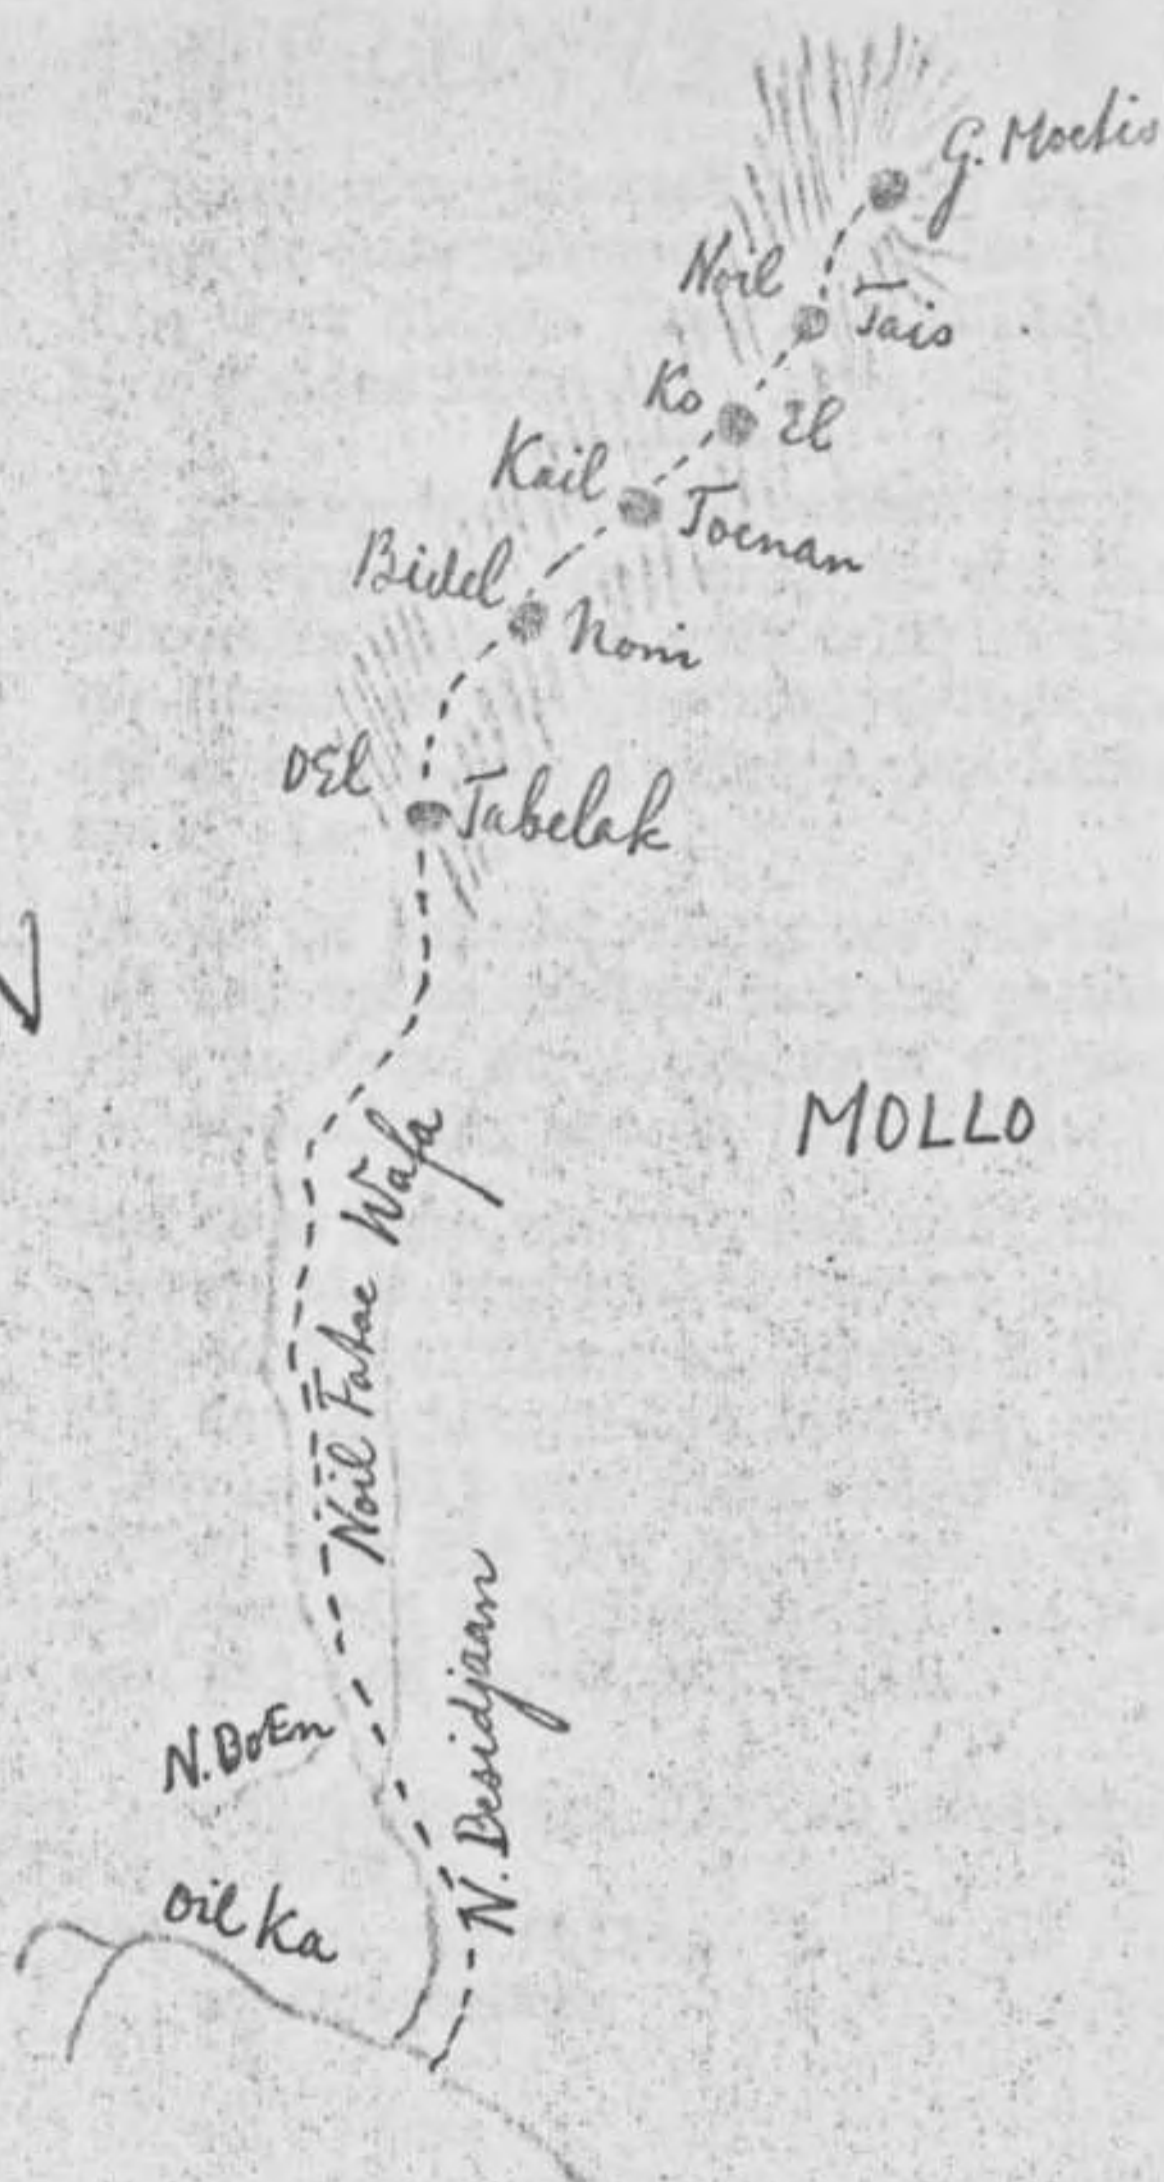 G. Moetis
Noil Tais
Ko El
Kail Toenan
Bidel Noni
DEl Tabelak
MOLLO
Noil Fatoe Wafa
N. Besidjaan
N. BoEn
oil Ka